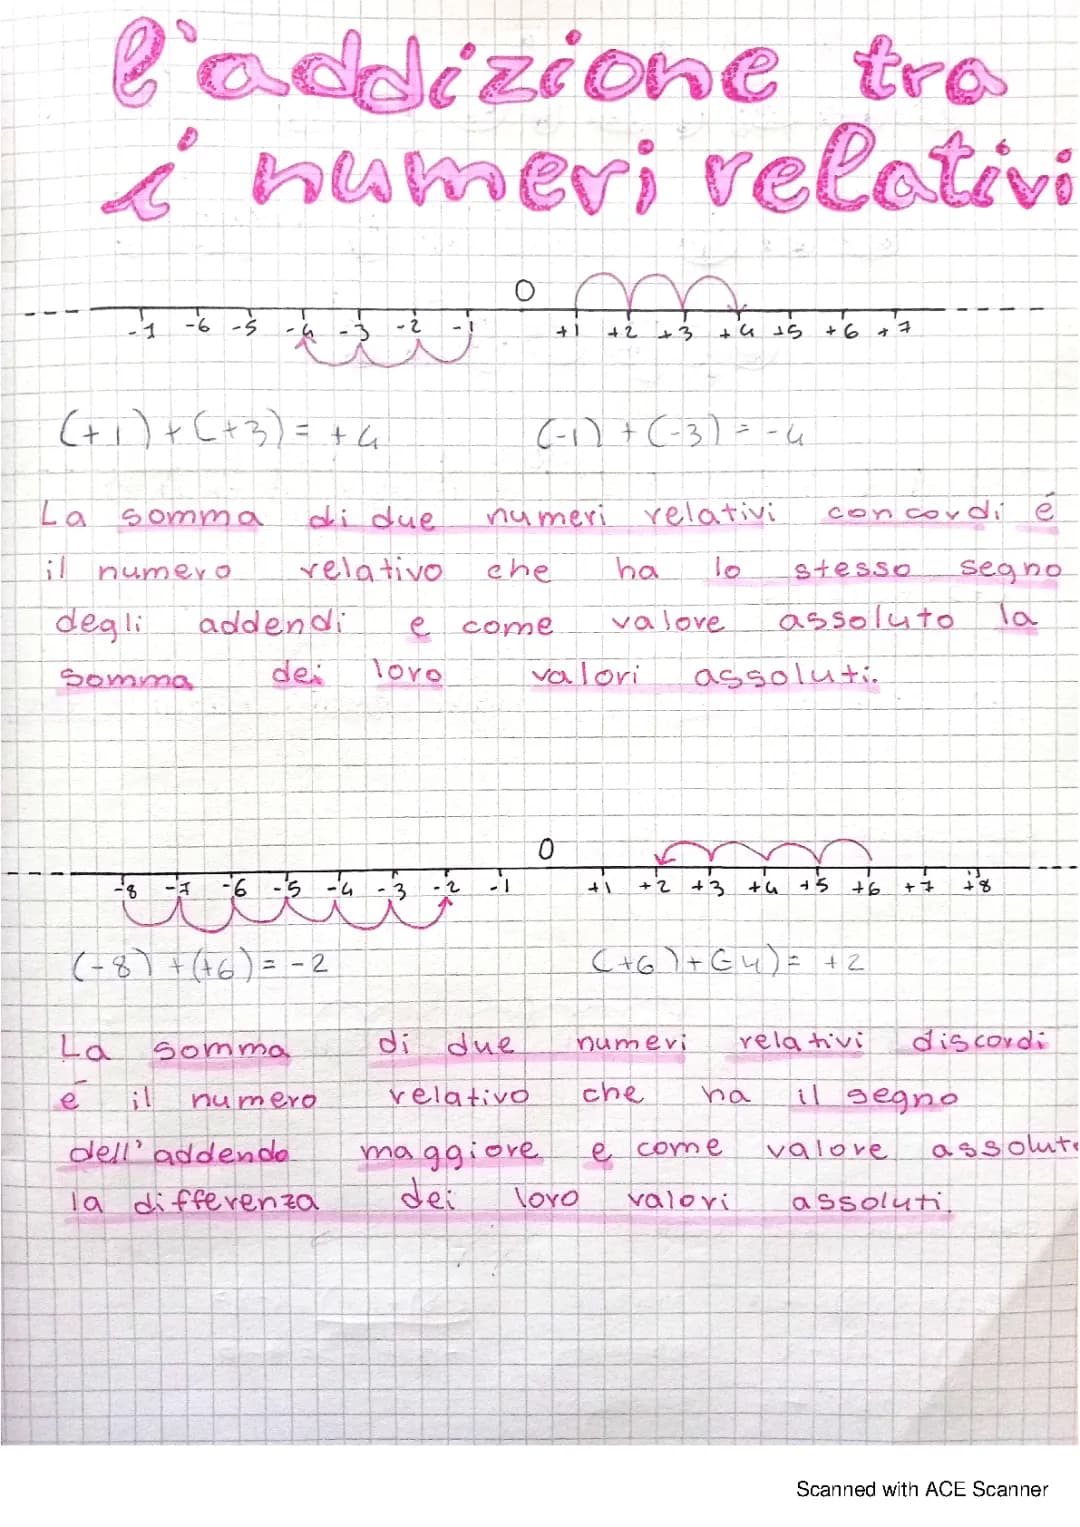 l'addizione tra
i numeri relativi
0
-7 -6 -5 -4 -3 -2 -1 +1 +2 +3 +4 +5 +6 +7
(+1)+(+3)= +4 (-1)+(-3)= -4
La somma di due numeri relativi concordi é
il numero relativo che ha lo stesso segno
degli addendi e come valore assoluto la
somma dei loro valori assoluti.
0
-8 -7 -6 -5 -4 -3 -2 -1 +1 +2 +3 +4 +5 +6 +7 +8
(-8)+(+6)= -2 (+6)+(-4)= +2
La somma di due numeri relativi discordi
é il numero relativo che ha il segno
dell'addendo maggiore e come valore assoluto
la differenza dei loro valori assoluti.
Scanned with ACE Scanner